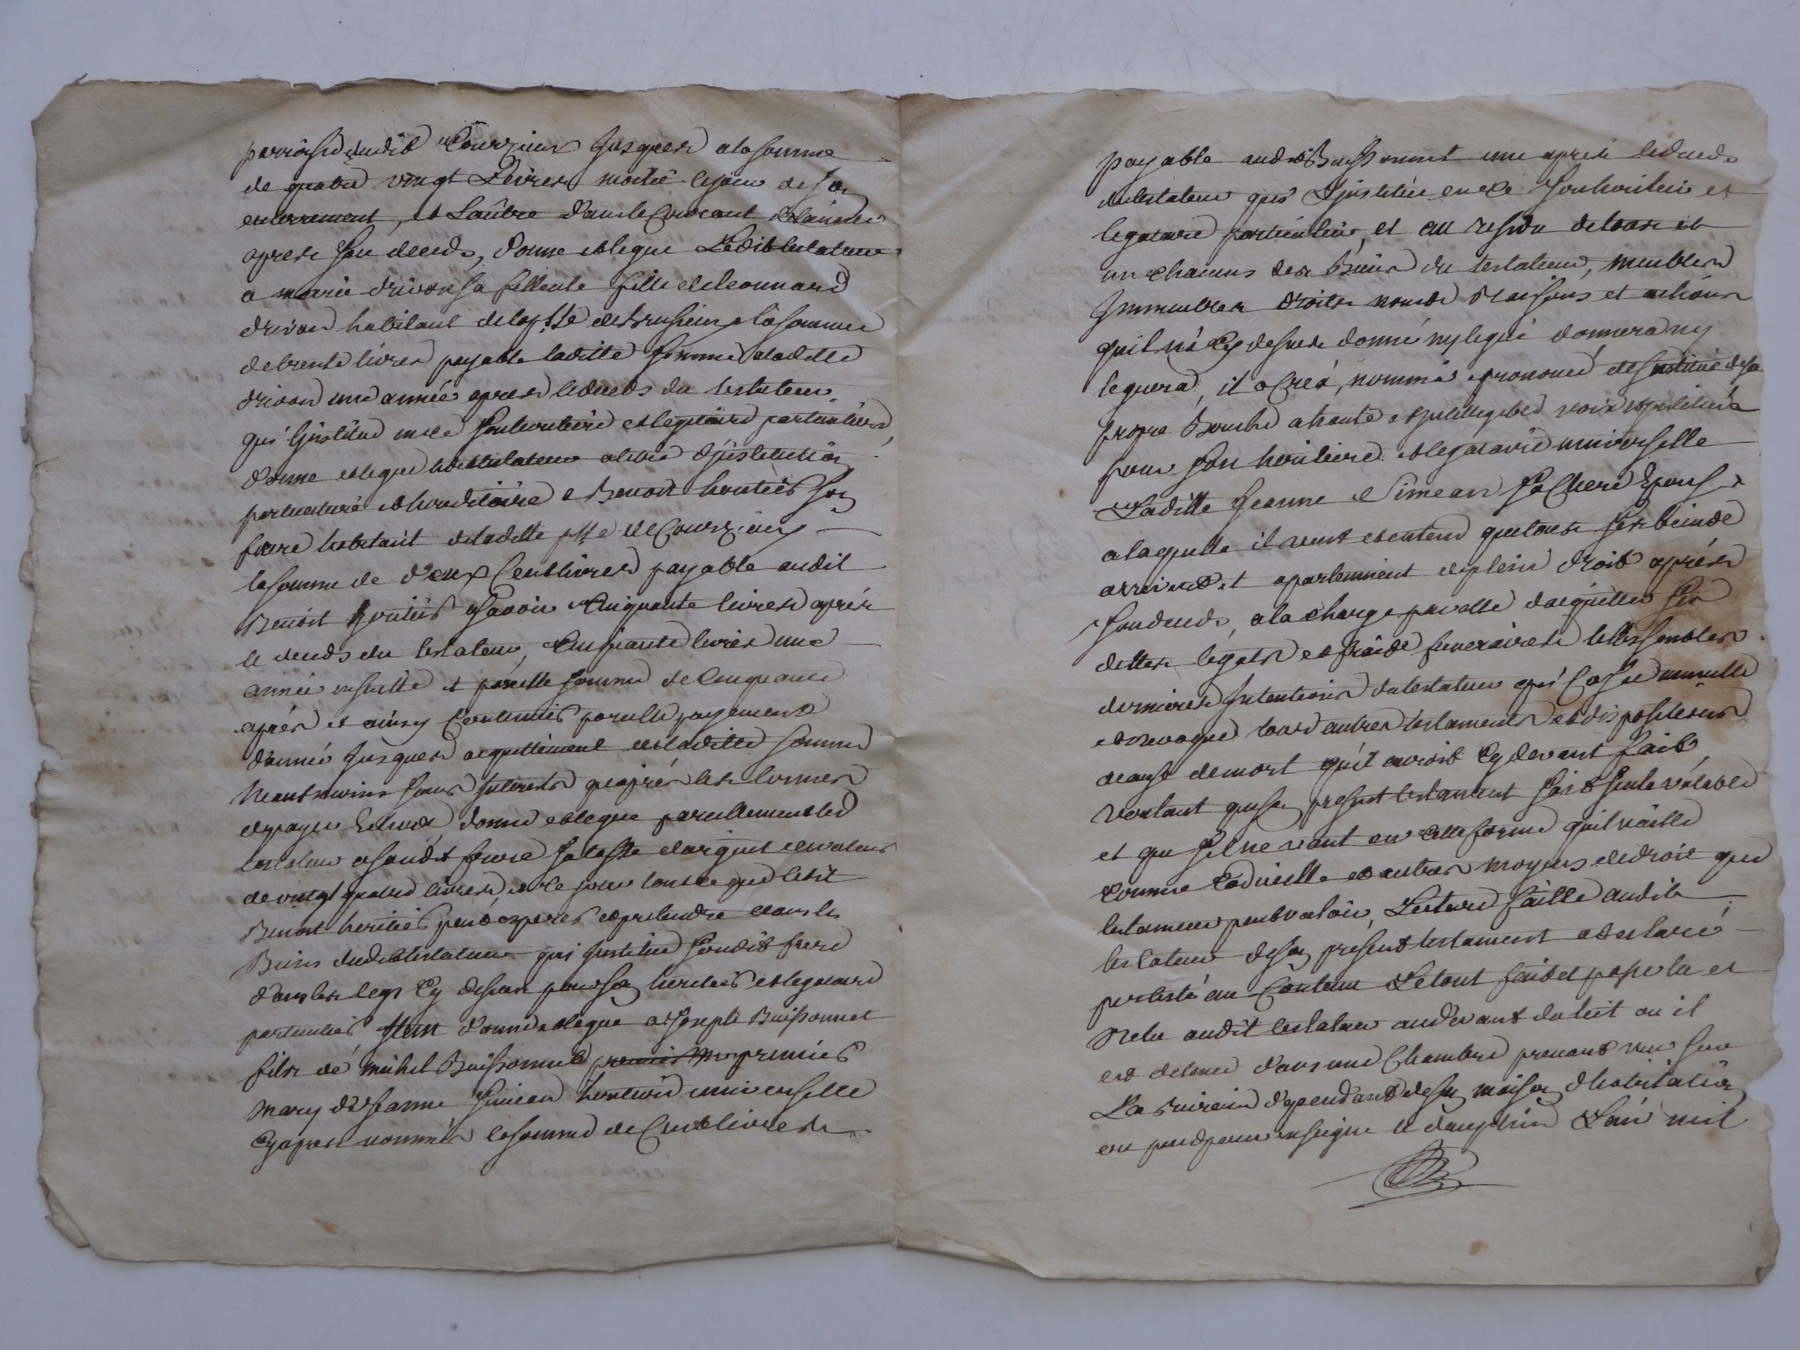 parroisse dudit Courzieu Jusques a la somme
de quatre vingt Livres moitié le jour de son
enterrement, et Lautre dans le Courant de Lannée
apres son deceds, donne et legue Ledit testateur
a marie drivon sa filleule fille de Leonnard
drivon habitant de la psse de la somme
de trente livres payable laditte somme a laditte
drivon une année apres le deceds du testateur
qui Linstitue en ce son heritiere et legataire particuliere,
donne et legue le testateur a titre d'institution
particuliere et hereditaire a Benoit heritier son
frere habitant de laditte psse de Courzieu
la somme de deux Cent livres payable audit
Benoit heritier Savoir Cinquante livres après
le deceds du testateur, Cinquante livres une
année ensuitte et pareille somme de Cinquante
après et ainsy Continuer pareille payement
d'année Jusques acquittement de laditte somme
Neantmoins sans Interets qu'après les termes
de payer donne et legue pareillement led
testateur a sondit frere sa tasse d'argent de valeur
de vingt quatre livres et ce pour tout ce que ledit
Benoit heritier peut esperer et pretendre dans les
Biens dudit testateur qui Institue sondit frere
dans les legs Cy dessus pour son heritier et legataire
particulier Item donne et legue a Joseph Buissonnet
fils de michel Buissonnet premier
mary de Jeanne Simean heritiere universelle
Cy apres nommée la somme de Cent livres
payable audit Buissonnet une après le deceds
du testateur qui L'institue en ce son heritier et
legataire particulier, et au residu de tous et
un chacuns des Biens du testateur, meubles
Immeubles droits noms Raisons et actions
qu'il n'a Cy dessus donné ny legué donnera ny
leguera, il a Créé, nommé prononcé et Institué de sa
propre Bouche a haute et intelligible voix
pour son heritiere et legataire universelle
Laditte Jeanne Simean sa Chere Epouse
a laquelle il veut et entend que tous ses biens
arrivent et apartiennent de plein droit après
son deceds, a la charge par elle d'acquitter ses
dettes legats et fraide funeraires telles sont les
dernieres Intentions du testateur qui Casse annulle
et revoque tous autres testaments et dispositions
a cause de mort qu'il auroit Cy devant fait,
voulant que son present testament soit seul valable
et que s'il ne vaut en cette forme qu'il vaille
comme Codicille et autres moyens de droit que
testament peut valoir, Lecture faitte audit
testateur de son present testament a declaré
persister au Contenu Le tout fait et passe lu et
Relu audit testateur au devant du lit ou il
est detenu dans une Chambre prenant vue sur
La riviere dependante de sa maison d'habitation
ou pend pour enseigne le dauphin L'an mil